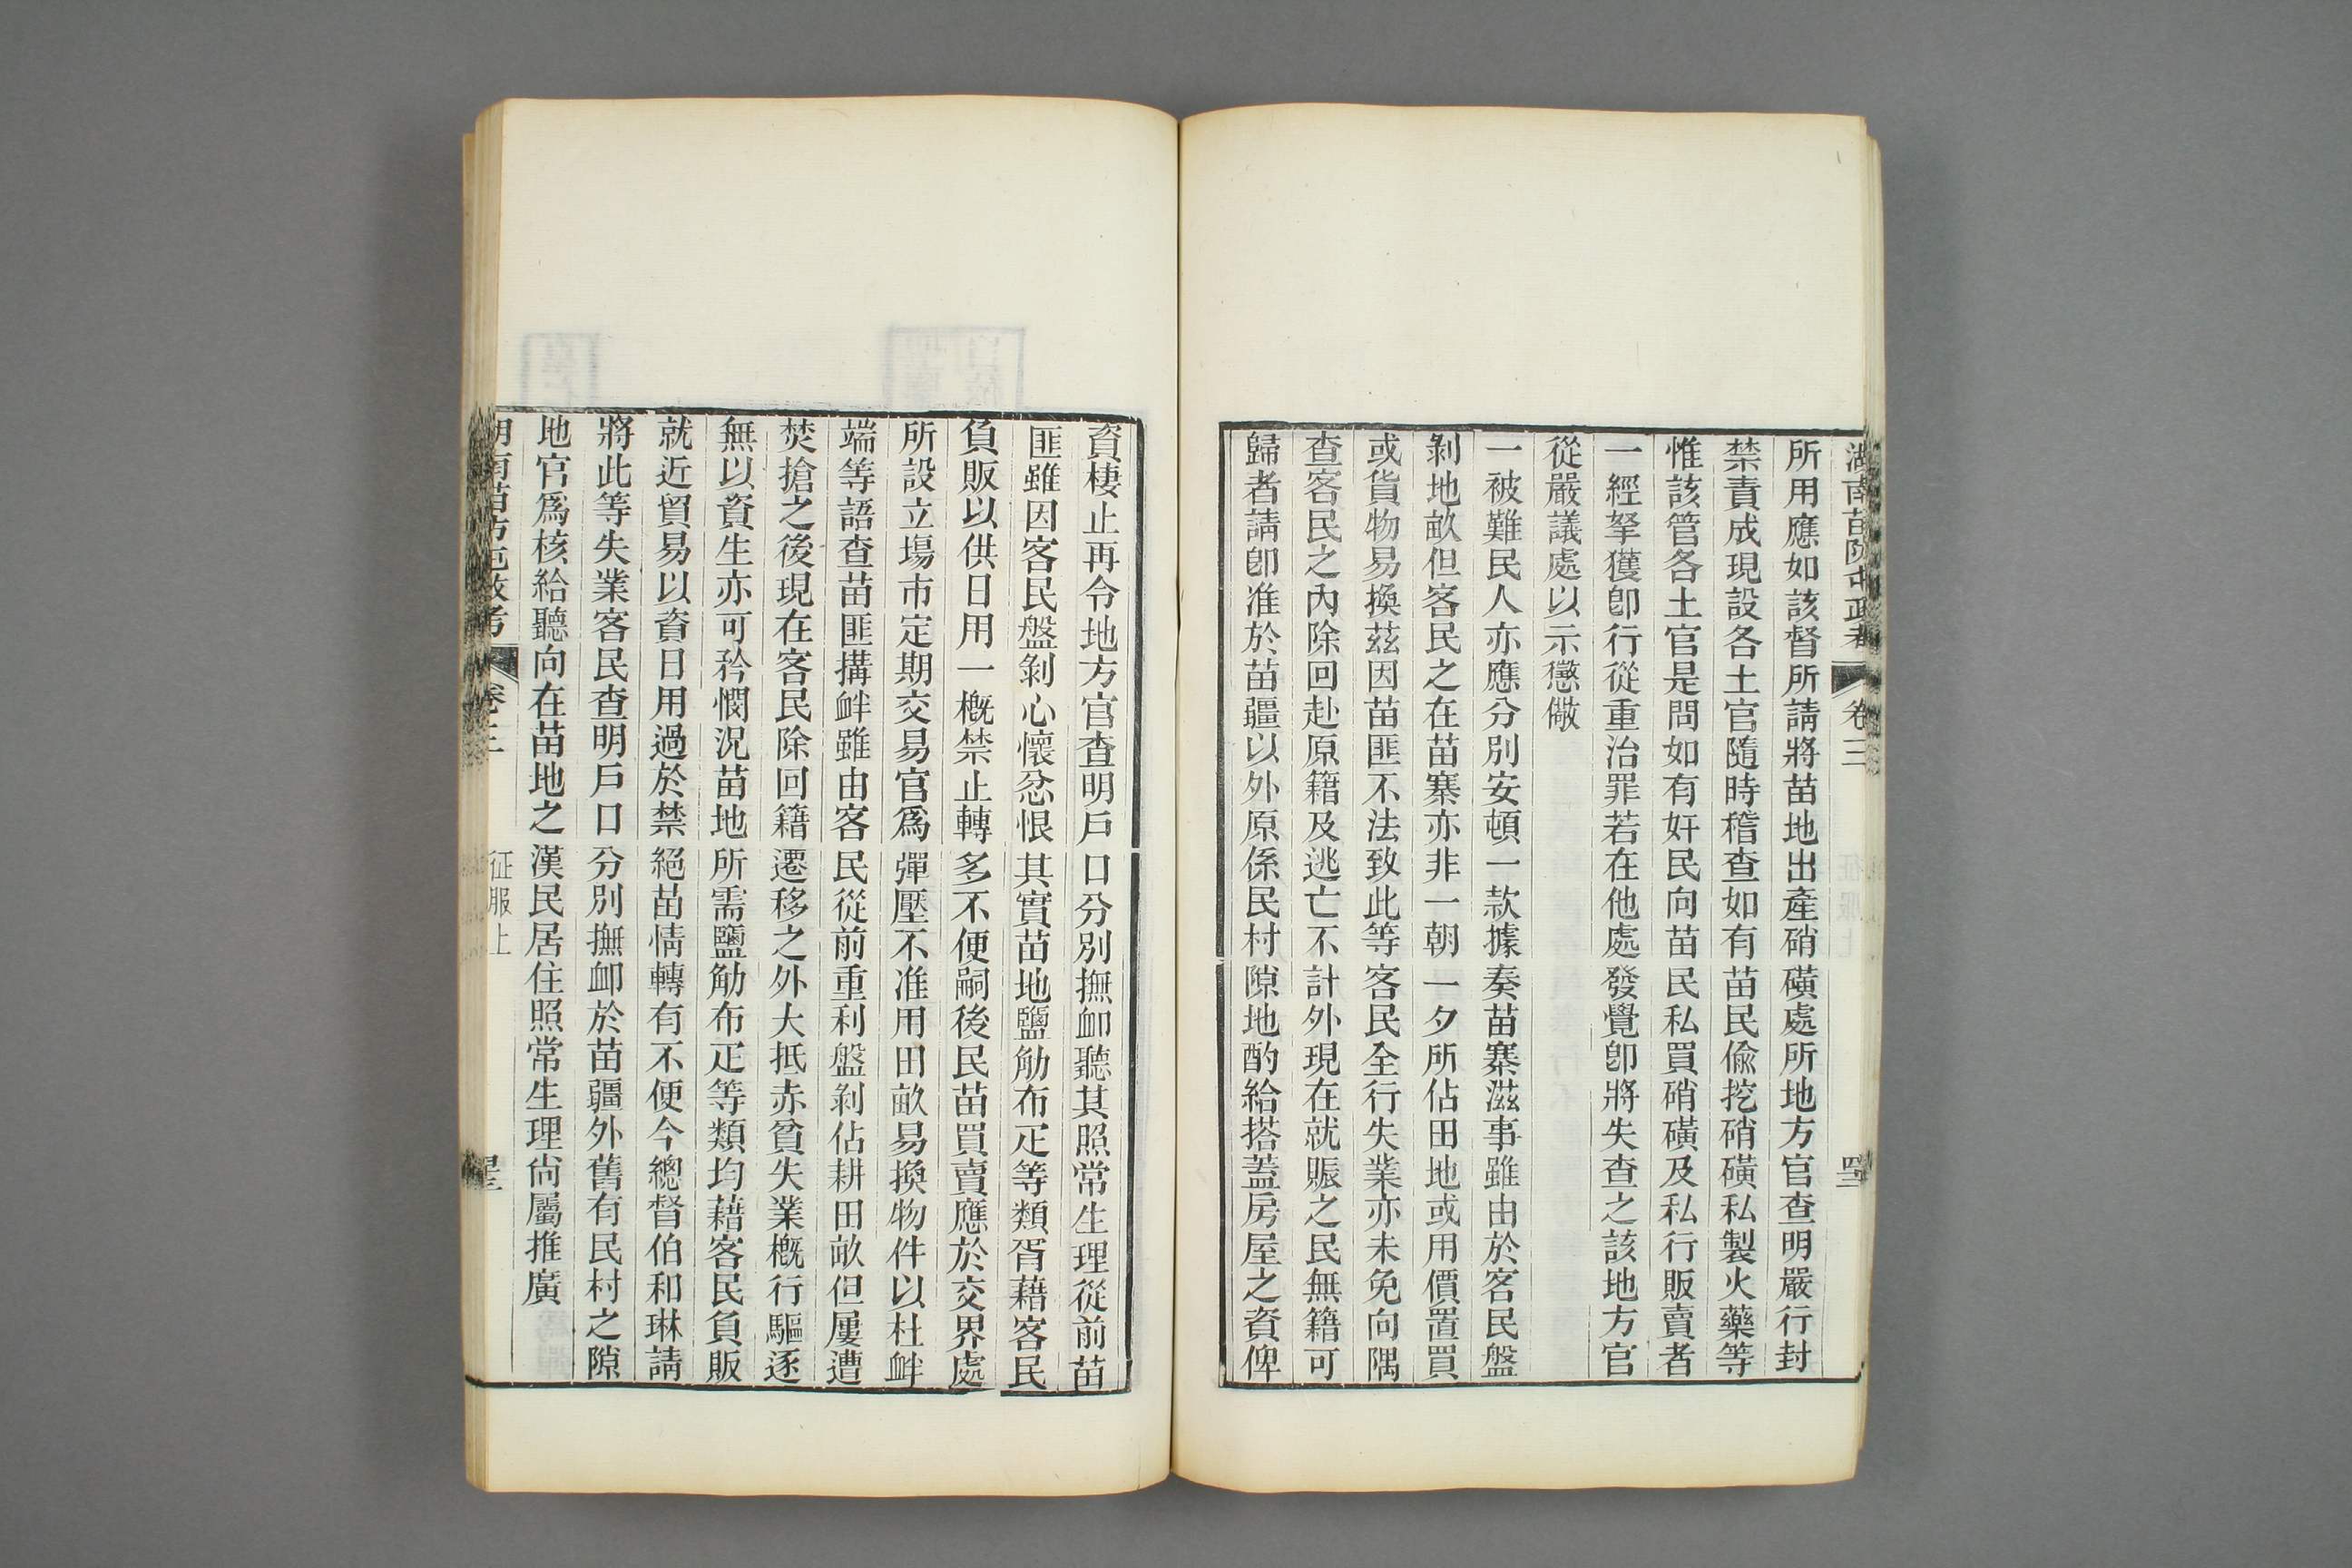 湖南苗防屯政考 卷三
所用應如該督所請將苗地出產硝磺處所地方官查明嚴行封
禁責成現設各土官隨時稽查如有苗民偸挖硝磺私製火藥等
惟該管各土官是問如有奸民向苗民私買硝磺及私行販賣者
一經拏獲卽行從重治罪若在他處發覺卽將失查之該地方官
從嚴議處以示懲儆
一被難民人亦應分別安頓一款據奏苗寨滋事雖由於客民盤
剝地畝但客民之在苗寨亦非一朝一夕所佔田地或用價置買
或貨物易換茲因苗匪不法致此等客民全行失業亦未免向隅
查客民之內除回赴原籍及逃亡不計外現在就賑之民無籍可
歸者請卽准於苗疆以外原係民村隙地酌給搭蓋房屋之資俾
資棲止再令地方官查明戶口分別撫卹聽其照常生理從前苗
匪雖因客民盤剝心懷忿恨其實苗地鹽觔布疋等類胥藉客民
負販以供日用一概禁止轉多不便嗣後民苗買賣應於交界處
所設立塲市定期交易官爲彈壓不准用田畝易換物件以杜衅
端等語查苗匪搆衅雖由客民從前重利盤剝佔耕田畝但屢遭
焚搶之後現在客民除回籍遷移之外大抵赤貧失業槪行驅逐
無以資生亦可矜憫況苗地所需鹽觔布疋等類均藉客民負販
就近貿易以資日用過於禁絕苗情轉有不便今總督伯和琳請
將此等失業客民查明戶口分別撫卹於苗疆外舊有民村之隙
地官爲核給聽向在苗地之漢民居住照常生理尙屬推廣
湖南苗防屯政考 卷三 征服上